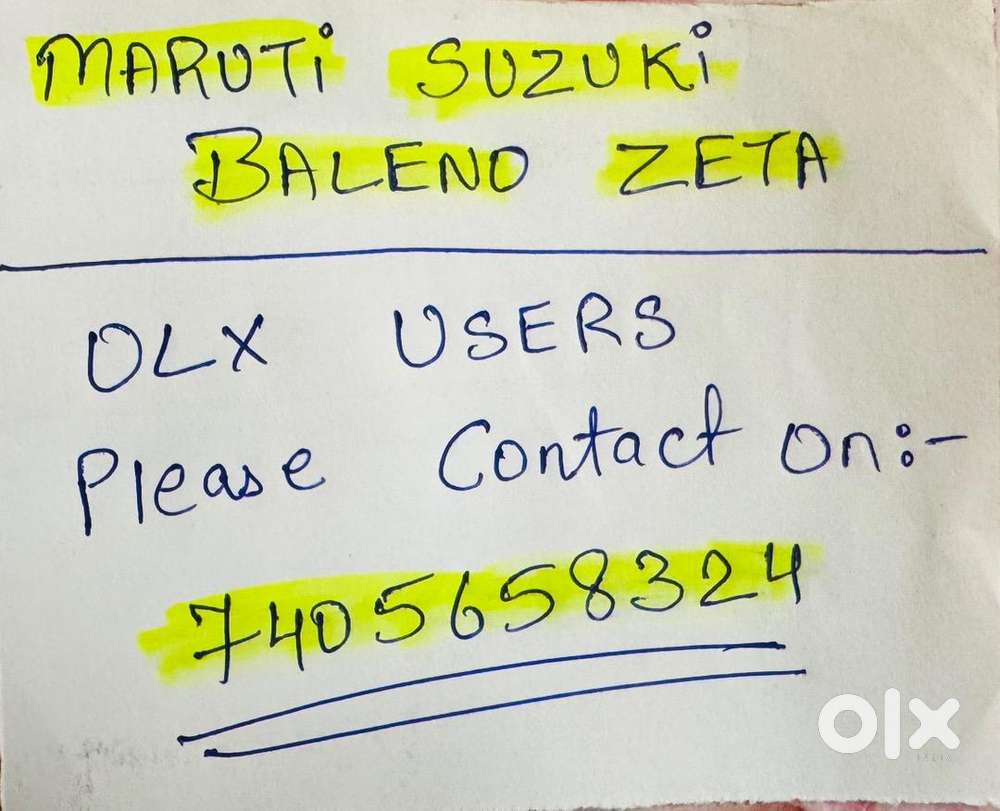 MARUTi SUZUKi
BALENO ZETA
OLX USERS
Please Contact On:-
7405658324
olx
INDIA